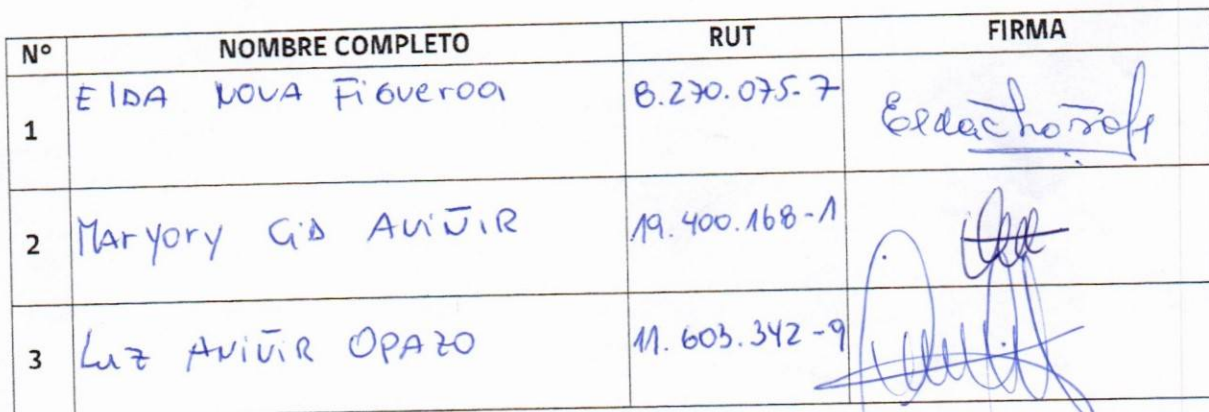 N° NOMBRE COMPLETO RUT FIRMA
1 ElDA NOVA Figueroa 8.270.075-7
2 MAryory CiD AviÑiR 19.400.168-1
3 Luz AviÑiR OPAZO 11.603.342-9